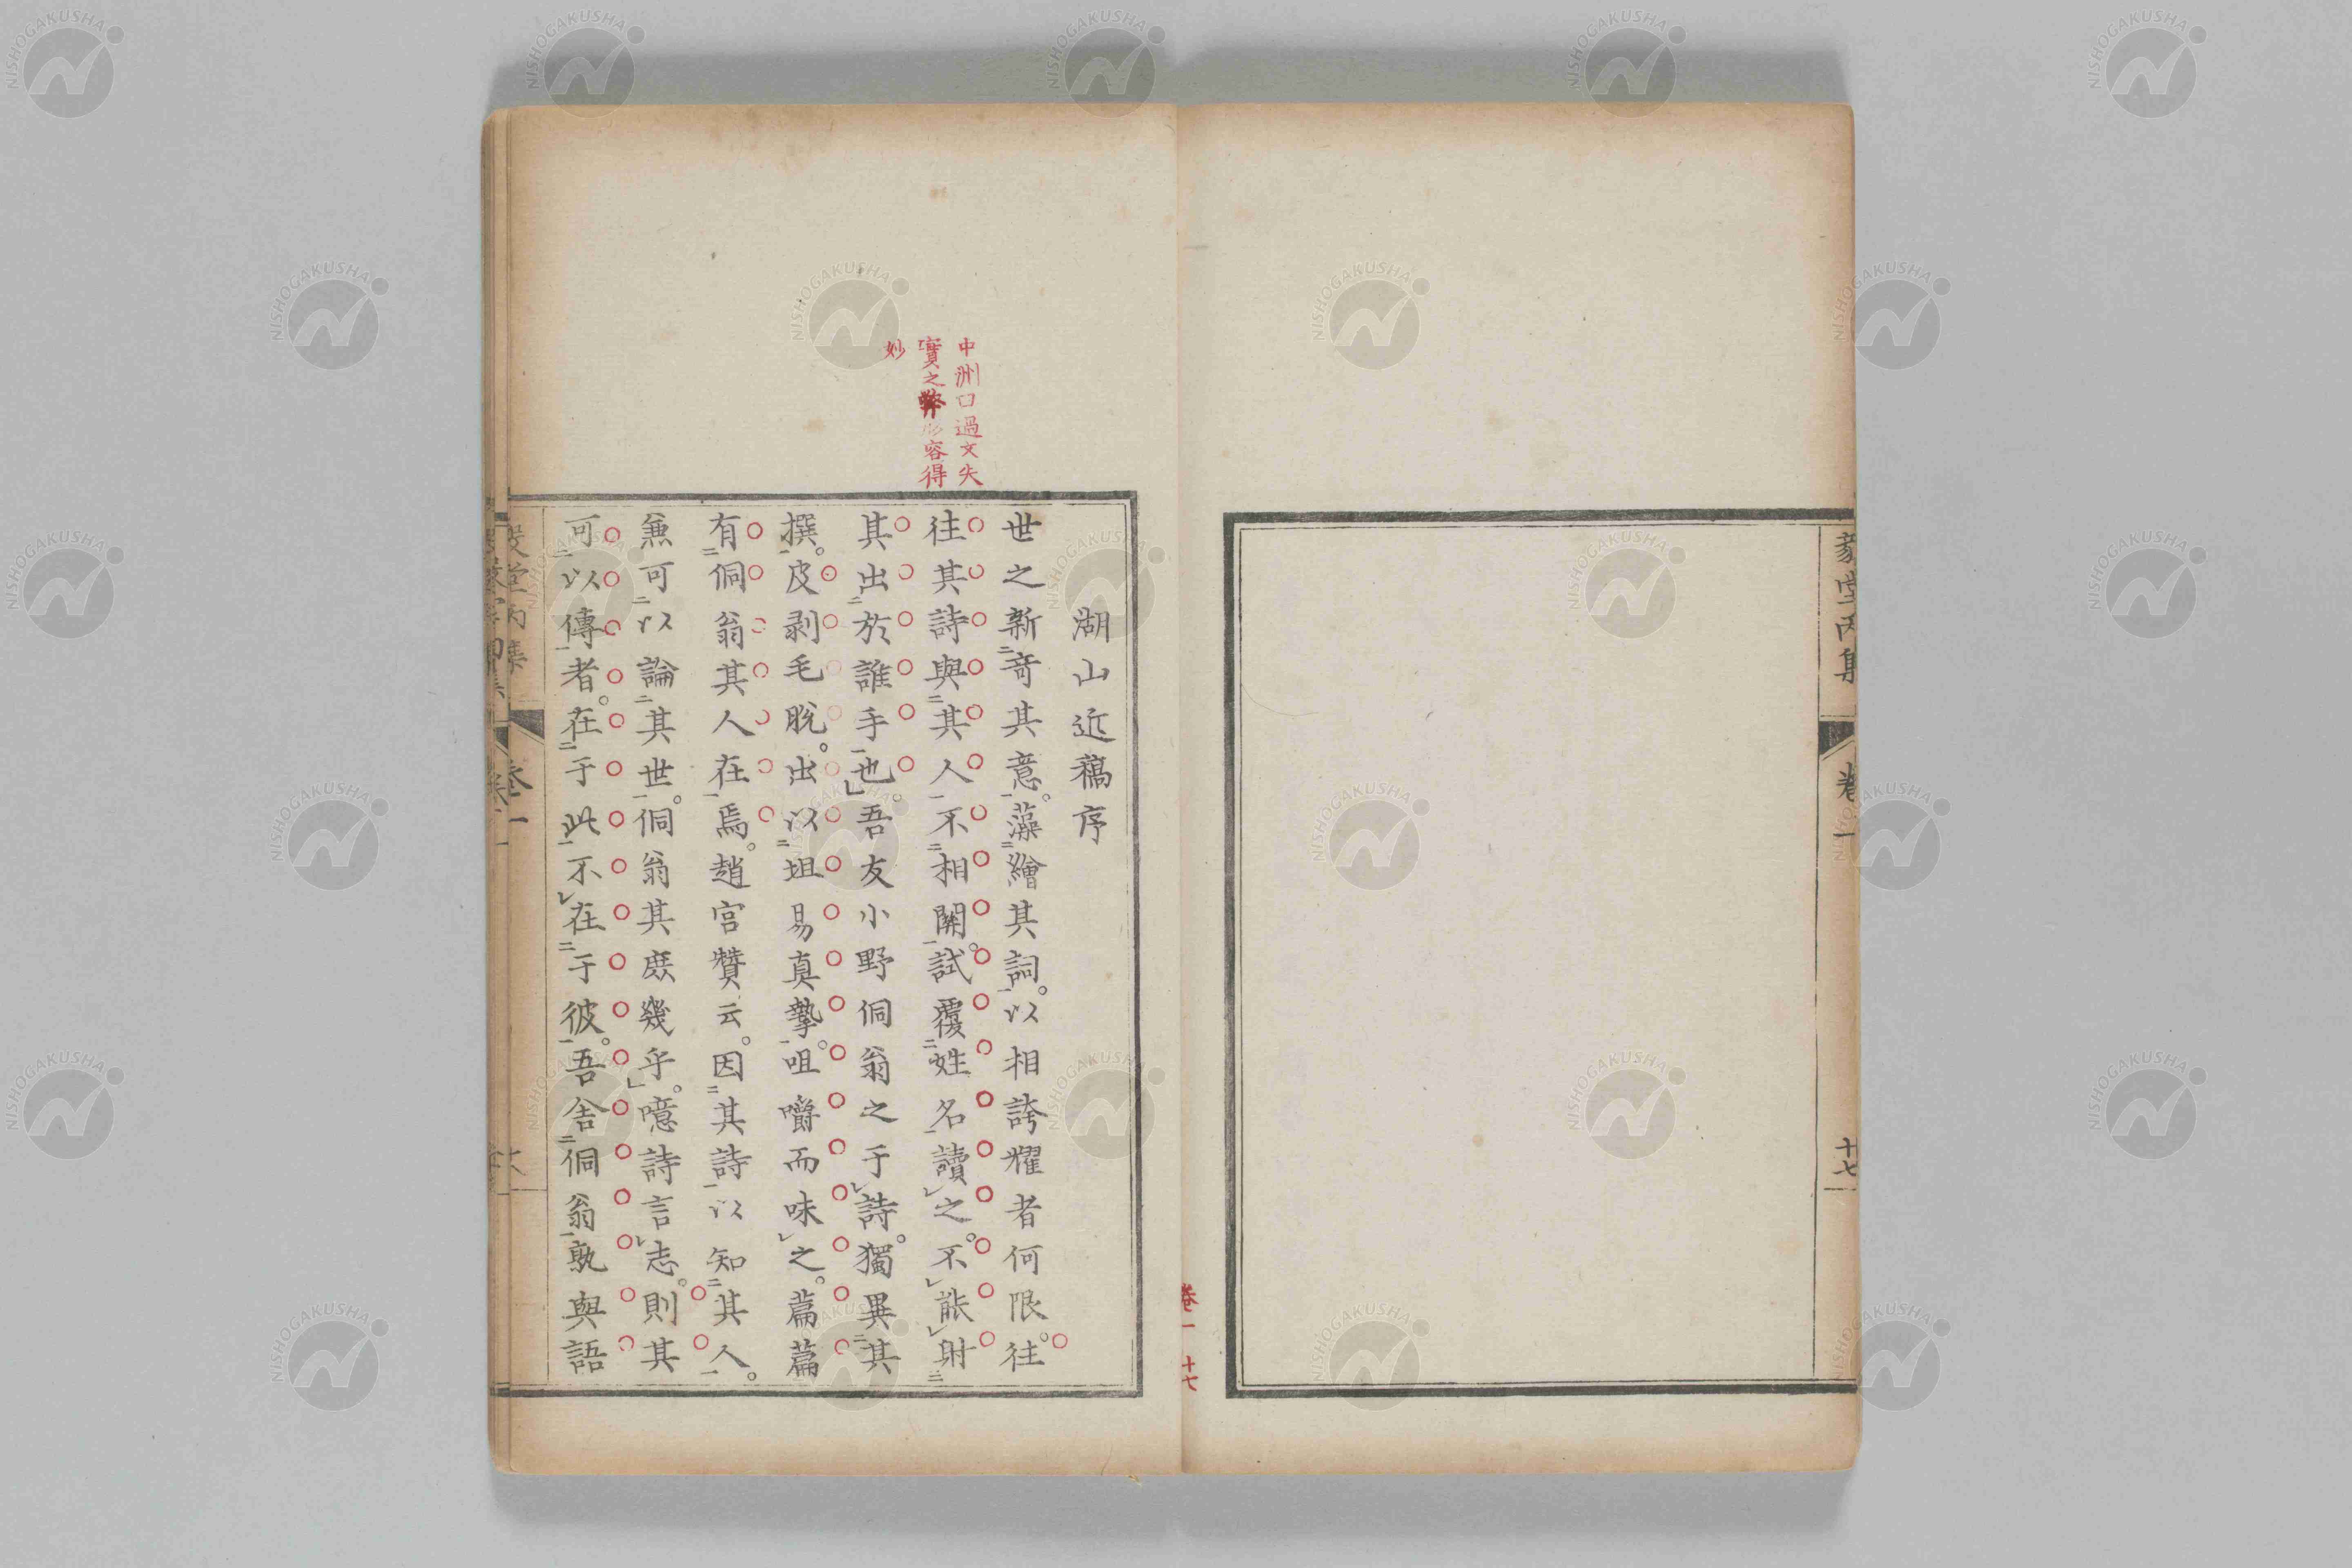 毅堂丙集 卷一 十七
卷一 十七
中洲曰過文失
實之弊形容得
妙
湖山近稿序
世之新竒其意。藻繪其詞。以相誇耀者何限。往
往其詩與其人不相關。試覆姓名讀之。不能射
其出於誰手也。吾友小野侗翁之于詩。獨異其
撰。皮剥毛脫。出以坦易真摯。咀嚼而味之。篇篇
有侗翁其人在焉。趙宮贊云。因其詩以知其人。
兼可以論其世。侗翁其庶幾乎。噫詩言志。則其
可以傳者。在于此不在于彼。吾舍侗翁孰與語